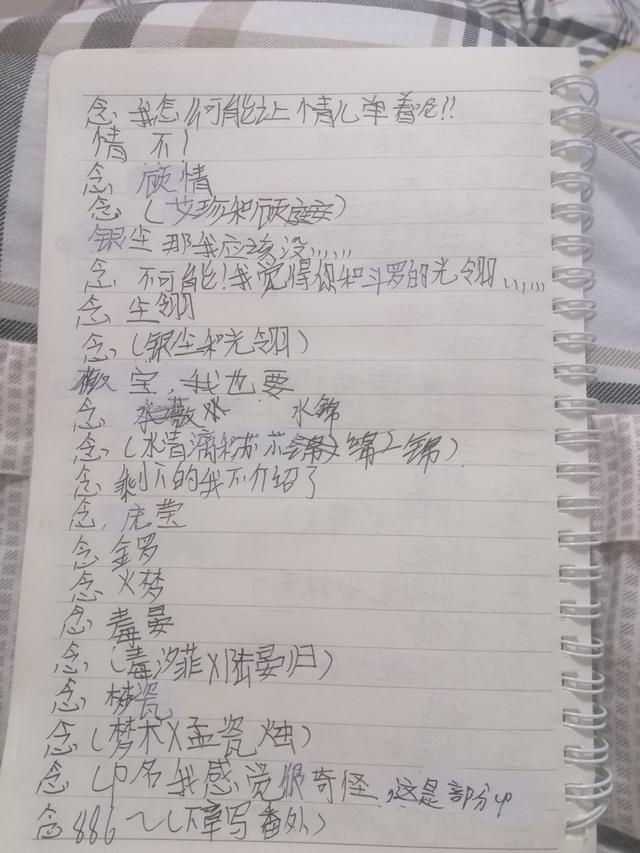 念：我怎么可能让情儿单着呢!!
情 不！
念： 顾情
念：（艾珍和顾庭安）
银尘 那我应该没、、、、、
念： 不可能！我觉得你和斗罗的光翎、、、、、
念： 尘翎
念：（银尘和光翎）
薇 宝，我也要
念： 水锦
念：（水清漓和苏 锦）
念： 剩下的我不介绍了
念： 庞莹
念： 金罗
念： 火梦
念： 毒晏
念：（毒汐菲X陆晏归）
念： 梦瓷
念：（梦木X孟瓷烛）
念： cp名我感觉很奇怪，这是部分cp
念： 886～（下章写番外）